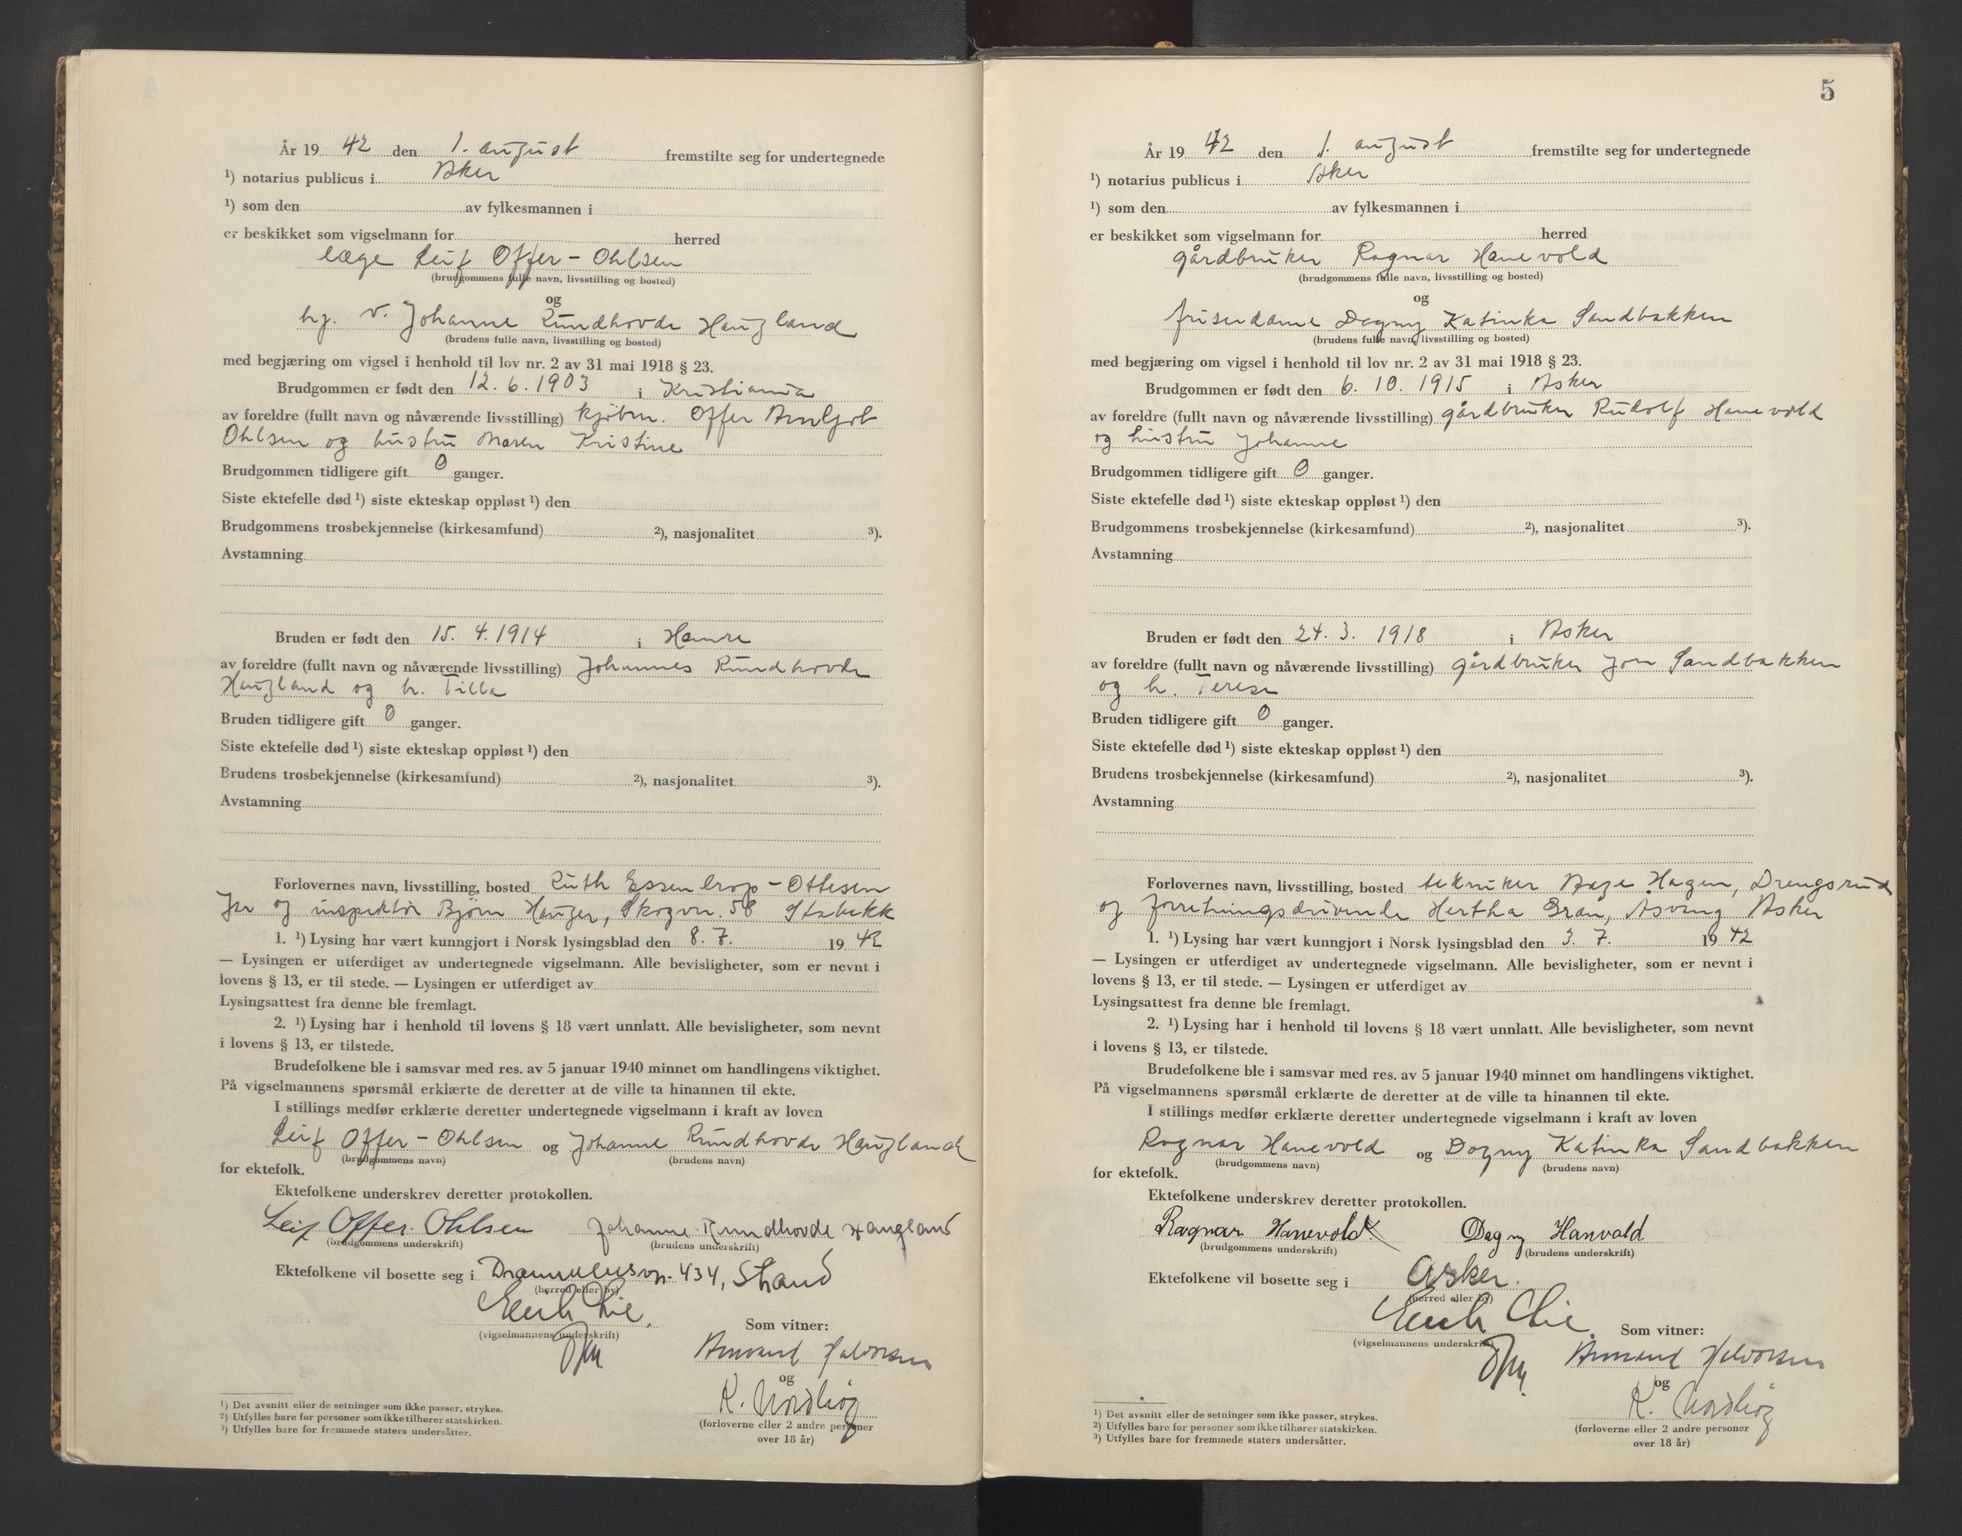 År 19 42 den 1. august fremstilte seg for undertegnede
¹) notarius publicus i Aker
¹) som den av fylkesmannen i
er beskikket som vigselmann for herred
læge Leif Offer-Ohlsen
(brudgommens fulle navn, livsstilling og bosted)
og
hj. v. Johanne Rundhovde Haugland
(brudens fulle navn, livsstilling og bosted)
med begjæring om vigsel i henhold til lov nr. 2 av 31 mai 1918 § 23.
Brudgommen er født den 12. 6. 1903 i Kristiania
av foreldre (fullt navn og nåværende livsstilling) kjøbm. Offer Arnljot
Ohlsen og hustru Maren Kristine
Brudgommen tidligere gift 0 ganger.
Siste ektefelle død ¹) siste ekteskap oppløst ¹) den
Brudgommens trosbekjennelse (kirkesamfund) ²), nasjonalitet ³).
Avstamning
Bruden er født den 15. 4. 1914 i Hamre
av foreldre (fullt navn og nåværende livsstilling) Johannes Rundhovde
Haugland og h. Tilla
Bruden tidligere gift 0 ganger.
Siste ektefelle død ¹) siste ekteskap oppløst ¹) den
Brudens trosbekjennelse (kirkesamfund) ²), nasjonalitet ³).
Avstamning
Forlovernes navn, livsstilling, bosted Ruth Essendrop-Ottesen
og inspektør Bjørn Hauger, Skogvn. 58 Stabekk
1. ¹) Lysing har vært kunngjort i Norsk lysingsblad den 8. 7. 19 42
— Lysingen er utferdiget av undertegnede vigselmann. Alle bevisligheter, som er nevnt i
lovens § 13, er til stede. — Lysingen er utferdiget av
Lysingsattest fra denne ble fremlagt.
2. ¹) Lysing har i henhold til lovens § 18 vært unnlatt. Alle bevisligheter, som nevnt
i lovens § 13, er tilstede.
Brudefolkene ble i samsvar med res. av 5 januar 1940 minnet om handlingens viktighet.
På vigselmannens spørsmål erklærte de deretter at de ville ta hinannen til ekte.
I stillings medfør erklærte deretter undertegnede vigselmann i kraft av loven
Leif Offer-Ohlsen og Johanne Rundhovde Haugland
(brudgommens navn) (brudens navn)
for ektefolk.
Ektefolkene underskrev deretter protokollen.
Leif Offer-Ohlsen Johanne Rundhovde Haugland
(brudgommens underskrift) (brudens underskrift)
Ektefolkene vil bosette seg i Drammensvn. 434, Strand
(herred eller by)
(vigselmannens underskrift)
Som vitner:
Amund Halvorsen
og
K. Nordhøg
(forloverne eller 2 andre personer
over 18 år)
¹) Det avsnitt eller de setninger som ikke passer, strykes.
²) Utfylles bare for personer som ikke tilhører statskirken.
³) Utfylles bare for fremmede staters undersåtter.
5
År 19 42 den 1. august fremstilte seg for undertegnede
¹) notarius publicus i Aker
¹) som den av fylkesmannen i
er beskikket som vigselmann for herred
gårdbruker Ragnar Hanevold
(brudgommens fulle navn, livsstilling og bosted)
og
friserdame Dagny Katinka Sandbakken
(brudens fulle navn, livsstilling og bosted)
med begjæring om vigsel i henhold til lov nr. 2 av 31 mai 1918 § 23.
Brudgommen er født den 6. 10. 1915 i Asker
av foreldre (fullt navn og nåværende livsstilling) gårdbruker Rudolf Hanevold
og hustru Johanne
Brudgommen tidligere gift 0 ganger.
Siste ektefelle død ¹) siste ekteskap oppløst ¹) den
Brudgommens trosbekjennelse (kirkesamfund) ²), nasjonalitet ³).
Avstamning
Bruden er født den 24. 3. 1918 i Asker
av foreldre (fullt navn og nåværende livsstilling) gårdbruker Jon Sandbakken
og h. Terese
Bruden tidligere gift 0 ganger.
Siste ektefelle død ¹) siste ekteskap oppløst ¹) den
Brudens trosbekjennelse (kirkesamfund) ²), nasjonalitet ³).
Avstamning
Forlovernes navn, livsstilling, bosted tekniker Aage Hagen, Drengsrud
og forretningsdrivende Hertha Gran, Asvang Asker
1. ¹) Lysing har vært kunngjort i Norsk lysingsblad den 3. 7. 19 42
— Lysingen er utferdiget av undertegnede vigselmann. Alle bevisligheter, som er nevnt i
lovens § 13, er til stede. — Lysingen er utferdiget av
Lysingsattest fra denne ble fremlagt.
2. ¹) Lysing har i henhold til lovens § 18 vært unnlatt. Alle bevisligheter, som nevnt
i lovens § 13, er tilstede.
Brudefolkene ble i samsvar med res. av 5 januar 1940 minnet om handlingens viktighet.
På vigselmannens spørsmål erklærte de deretter at de ville ta hinannen til ekte.
I stillings medfør erklærte deretter undertegnede vigselmann i kraft av loven
Ragnar Hanevold og Dagny Katinka Sandbakken
(brudgommens navn) (brudens navn)
for ektefolk.
Ektefolkene underskrev deretter protokollen.
Ragnar Hanevold Dagny Hanvold
(brudgommens underskrift) (brudens underskrift)
Ektefolkene vil bosette seg i Asker.
(herred eller by)
(vigselmannens underskrift)
Som vitner:
Amund Halvorsen
og
K. Nordhøg
(forloverne eller 2 andre personer
over 18 år)
¹) Det avsnitt eller de setninger som ikke passer, strykes.
²) Utfylles bare for personer som ikke tilhører statskirken.
³) Utfylles bare for fremmede staters undersåtter.